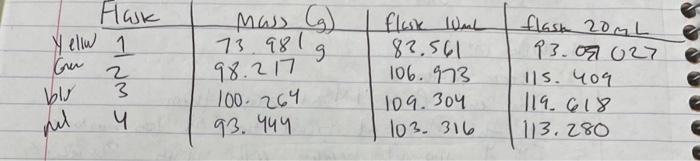 Flask Mass (g) flask 10mL flask 20mL
Yellw 1 73.981 g 82.561 93.027
Gren 2 98.217 106.973 115.409
blu 3 100.264 109.304 119.618
red 4 93.444 103.316 113.280